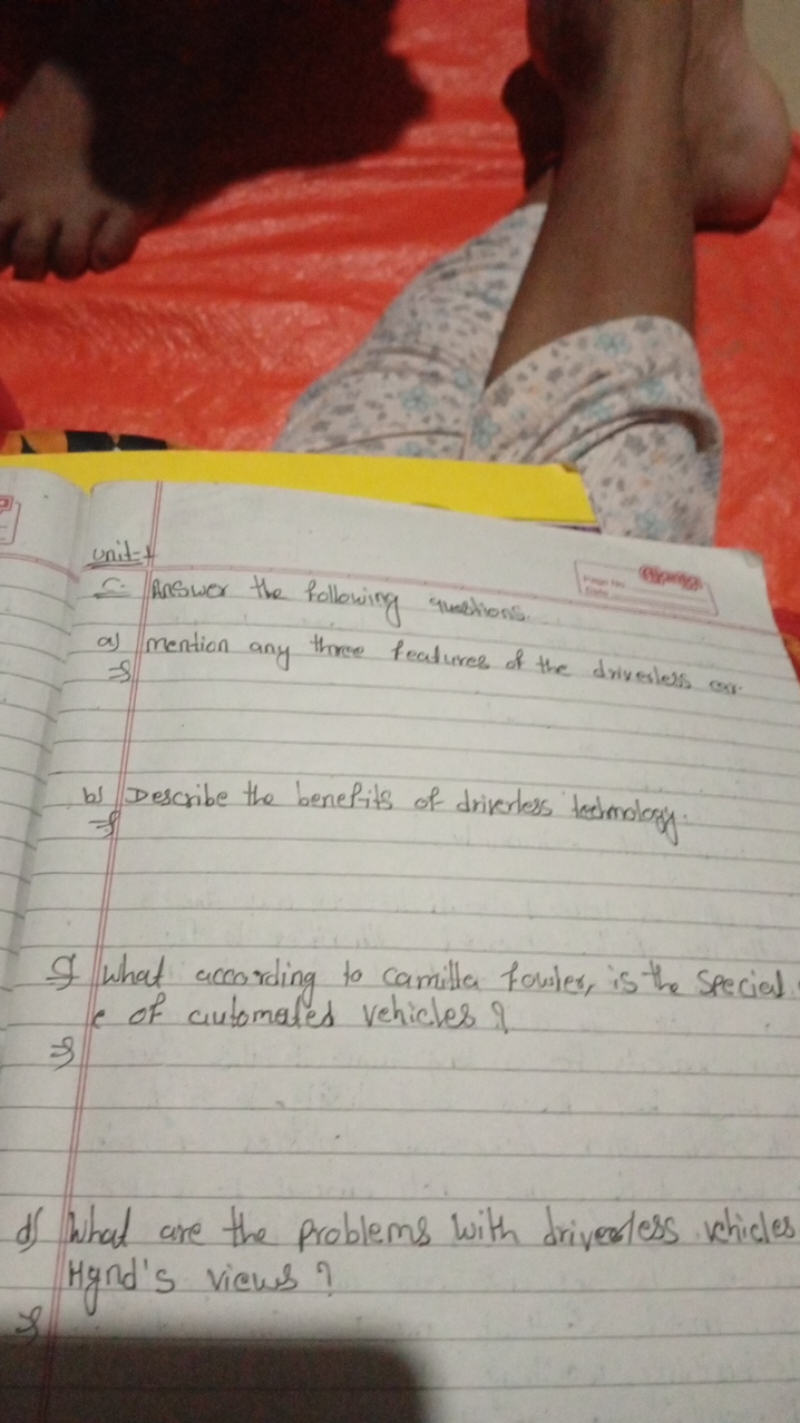 unit-1
c. Answer the following questions.
a) mention any three features of the driverless car.
⇒
b) Describe the benefits of driverless technology.
⇒
c) What according to camilla fowler, is the special
e of automated vehicles?
⇒
d) What are the problems with driverless vehicles
Hynd's views?
⇒
Page No.
Date